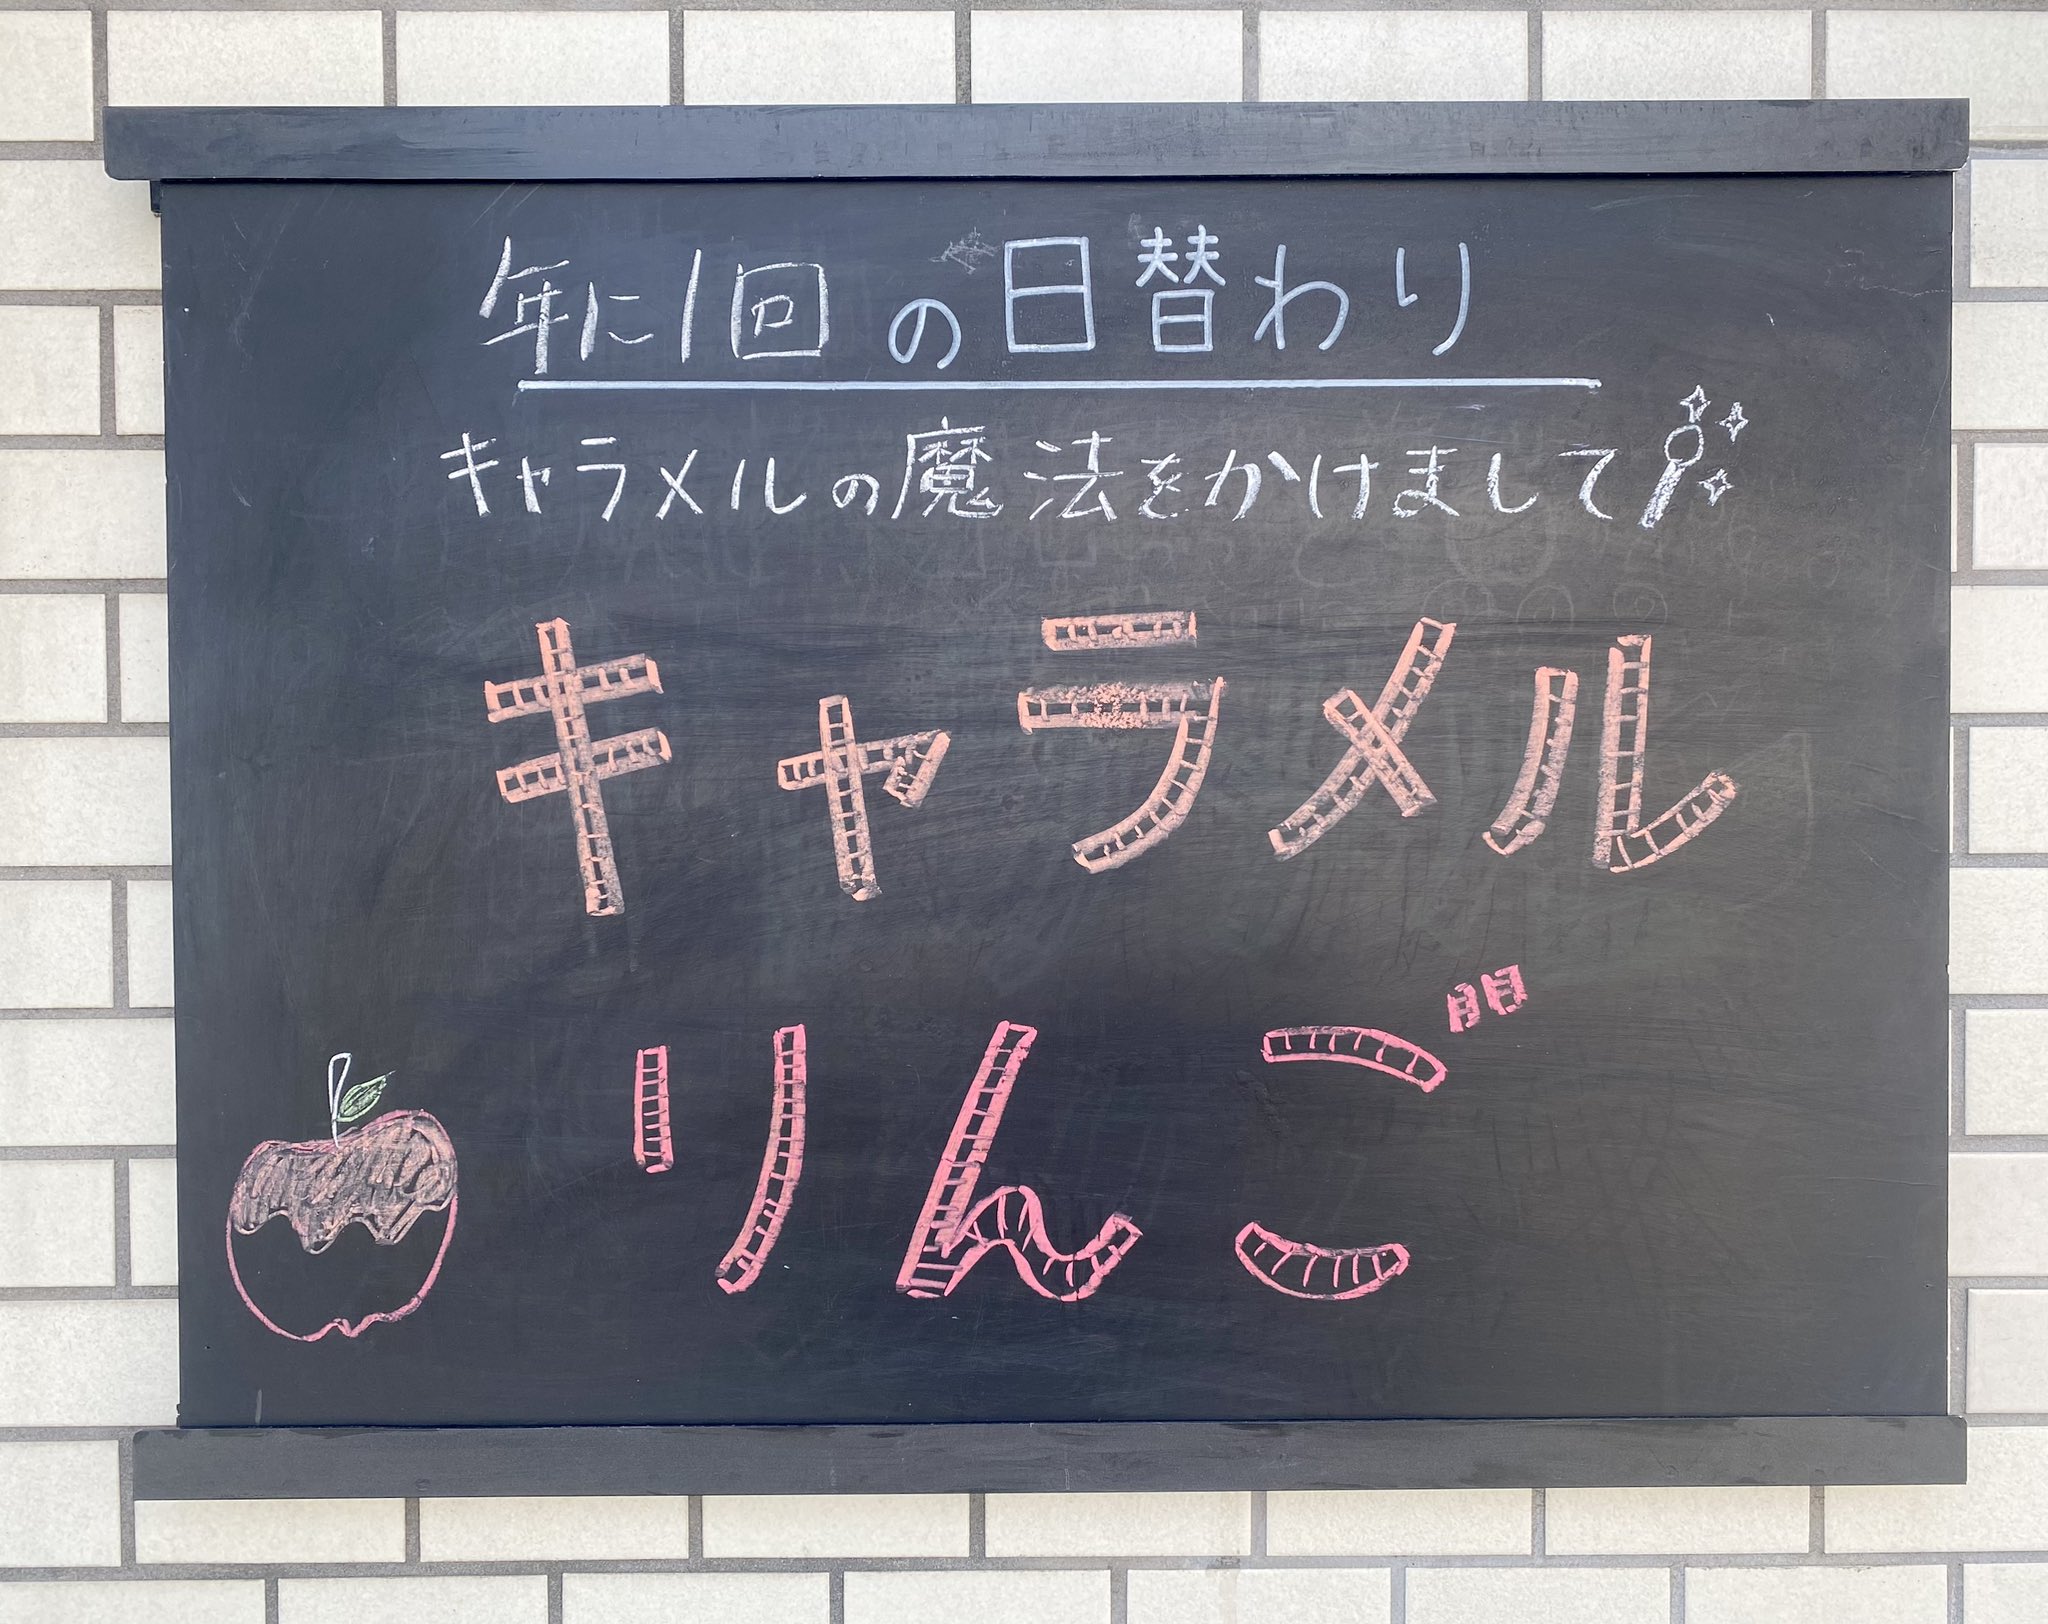 年に1回の日替わり
キャラメルの魔法をかけまして
キャラメル
りんご